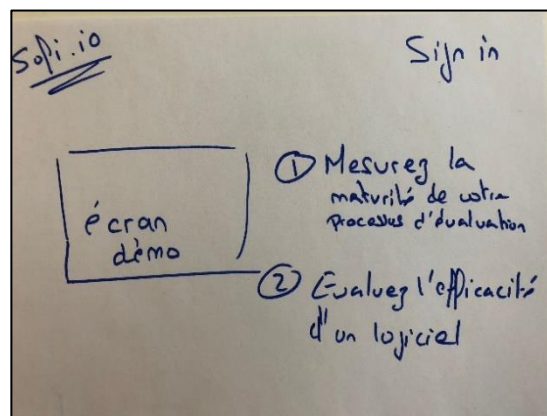 Sofi.io
Sign in
écran
démo
① Mesurez la
maturité de votre
processus d'évaluation
② Evaluez l'efficacité
d'un logiciel